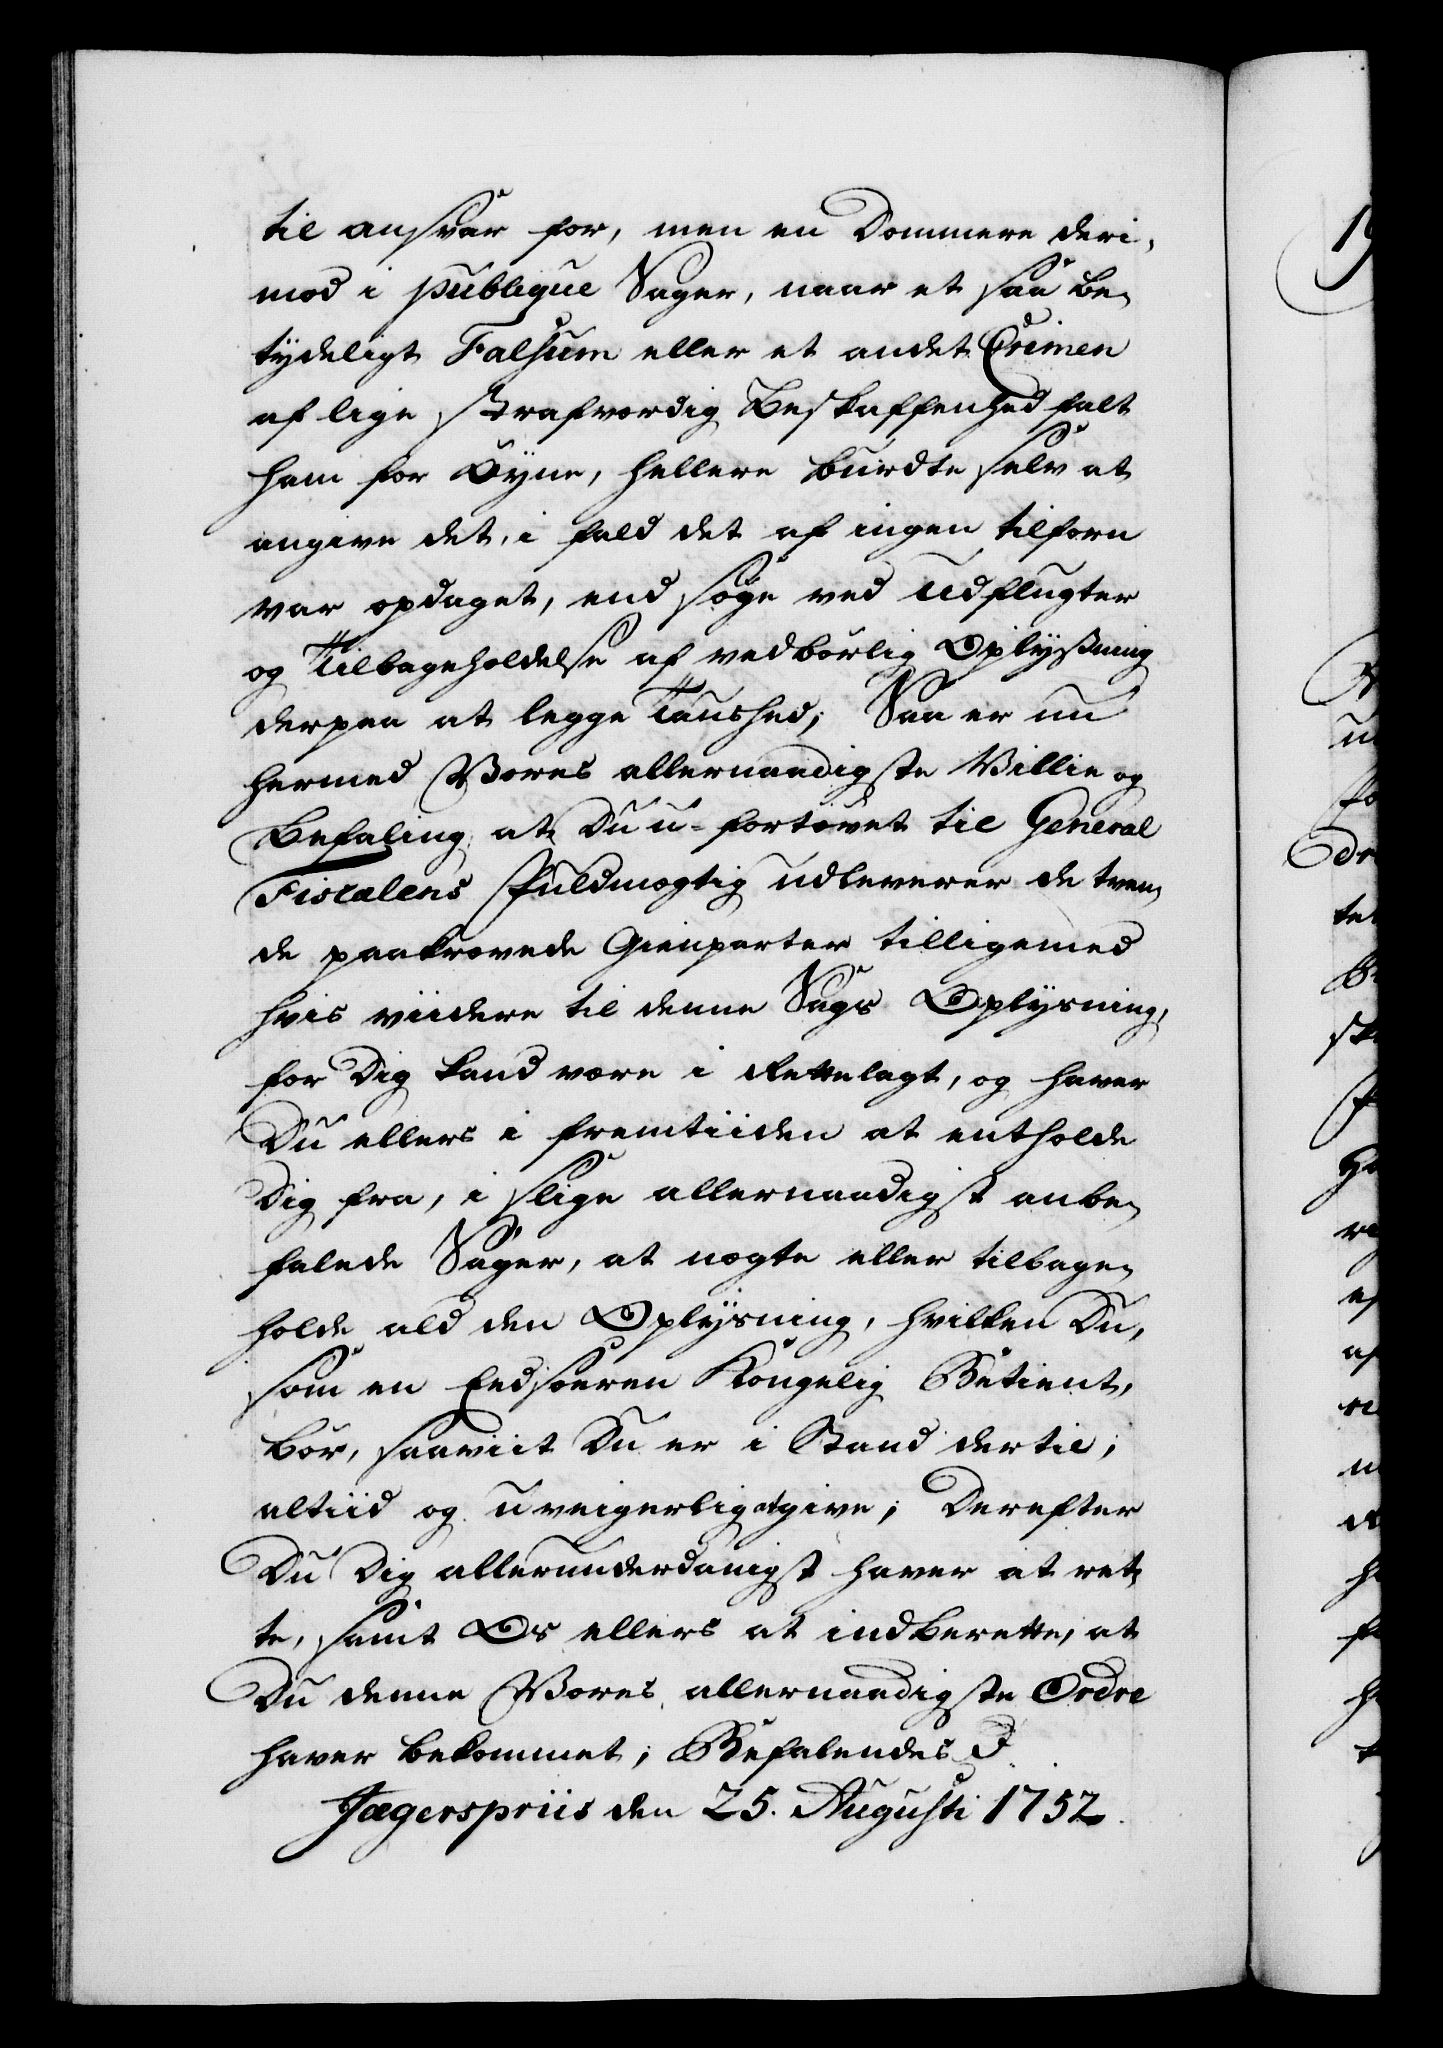 til ansvar for, men en Dommere deri,
mod i publique Sager, naar et saa be,
tydeligt Falsum eller et andet Crimen
af lige Strafværdig Beskaffenhed falt
ham for Øyne, hellere burdte selv at
angive det, i fald det af ingen tilforn
var opdaget, end søge ved Udflugter
og Tilbageholdelse af vedbørlig Oplyßning
derpaa at legge Taushed; Saa er nu
hermed Vores allernaadigste Villie og
Befaling, at Du u-fortøvet til General
Fiscalens Fuldmægtig udleverer de tven,
de paakrævede Gienparter tilligemed
hvis viidere til denne Sags Oplysning,
for Dig kand være i Rettelagt, og haver
Du ellers i fremtiiden at entholde
Dig fra, i slige allernaadigst anbe,
falede Sager, at nægte eller tilbage,
holde ald den Oplysning, hvilken Du,
som en Eedsoeren Kongelig Betient,
bør, saaviit Du er i Stand dertil,
altiid og uveigerlig at give; Derefter
Du Dig allerunderdanigst haver at ret,
te, samt Os ellers at indberette, at
Du denne Vores allernaadigste Ordre
haver bekommet; Befalendes
Jægerspriis den 25. Augusti 1752.